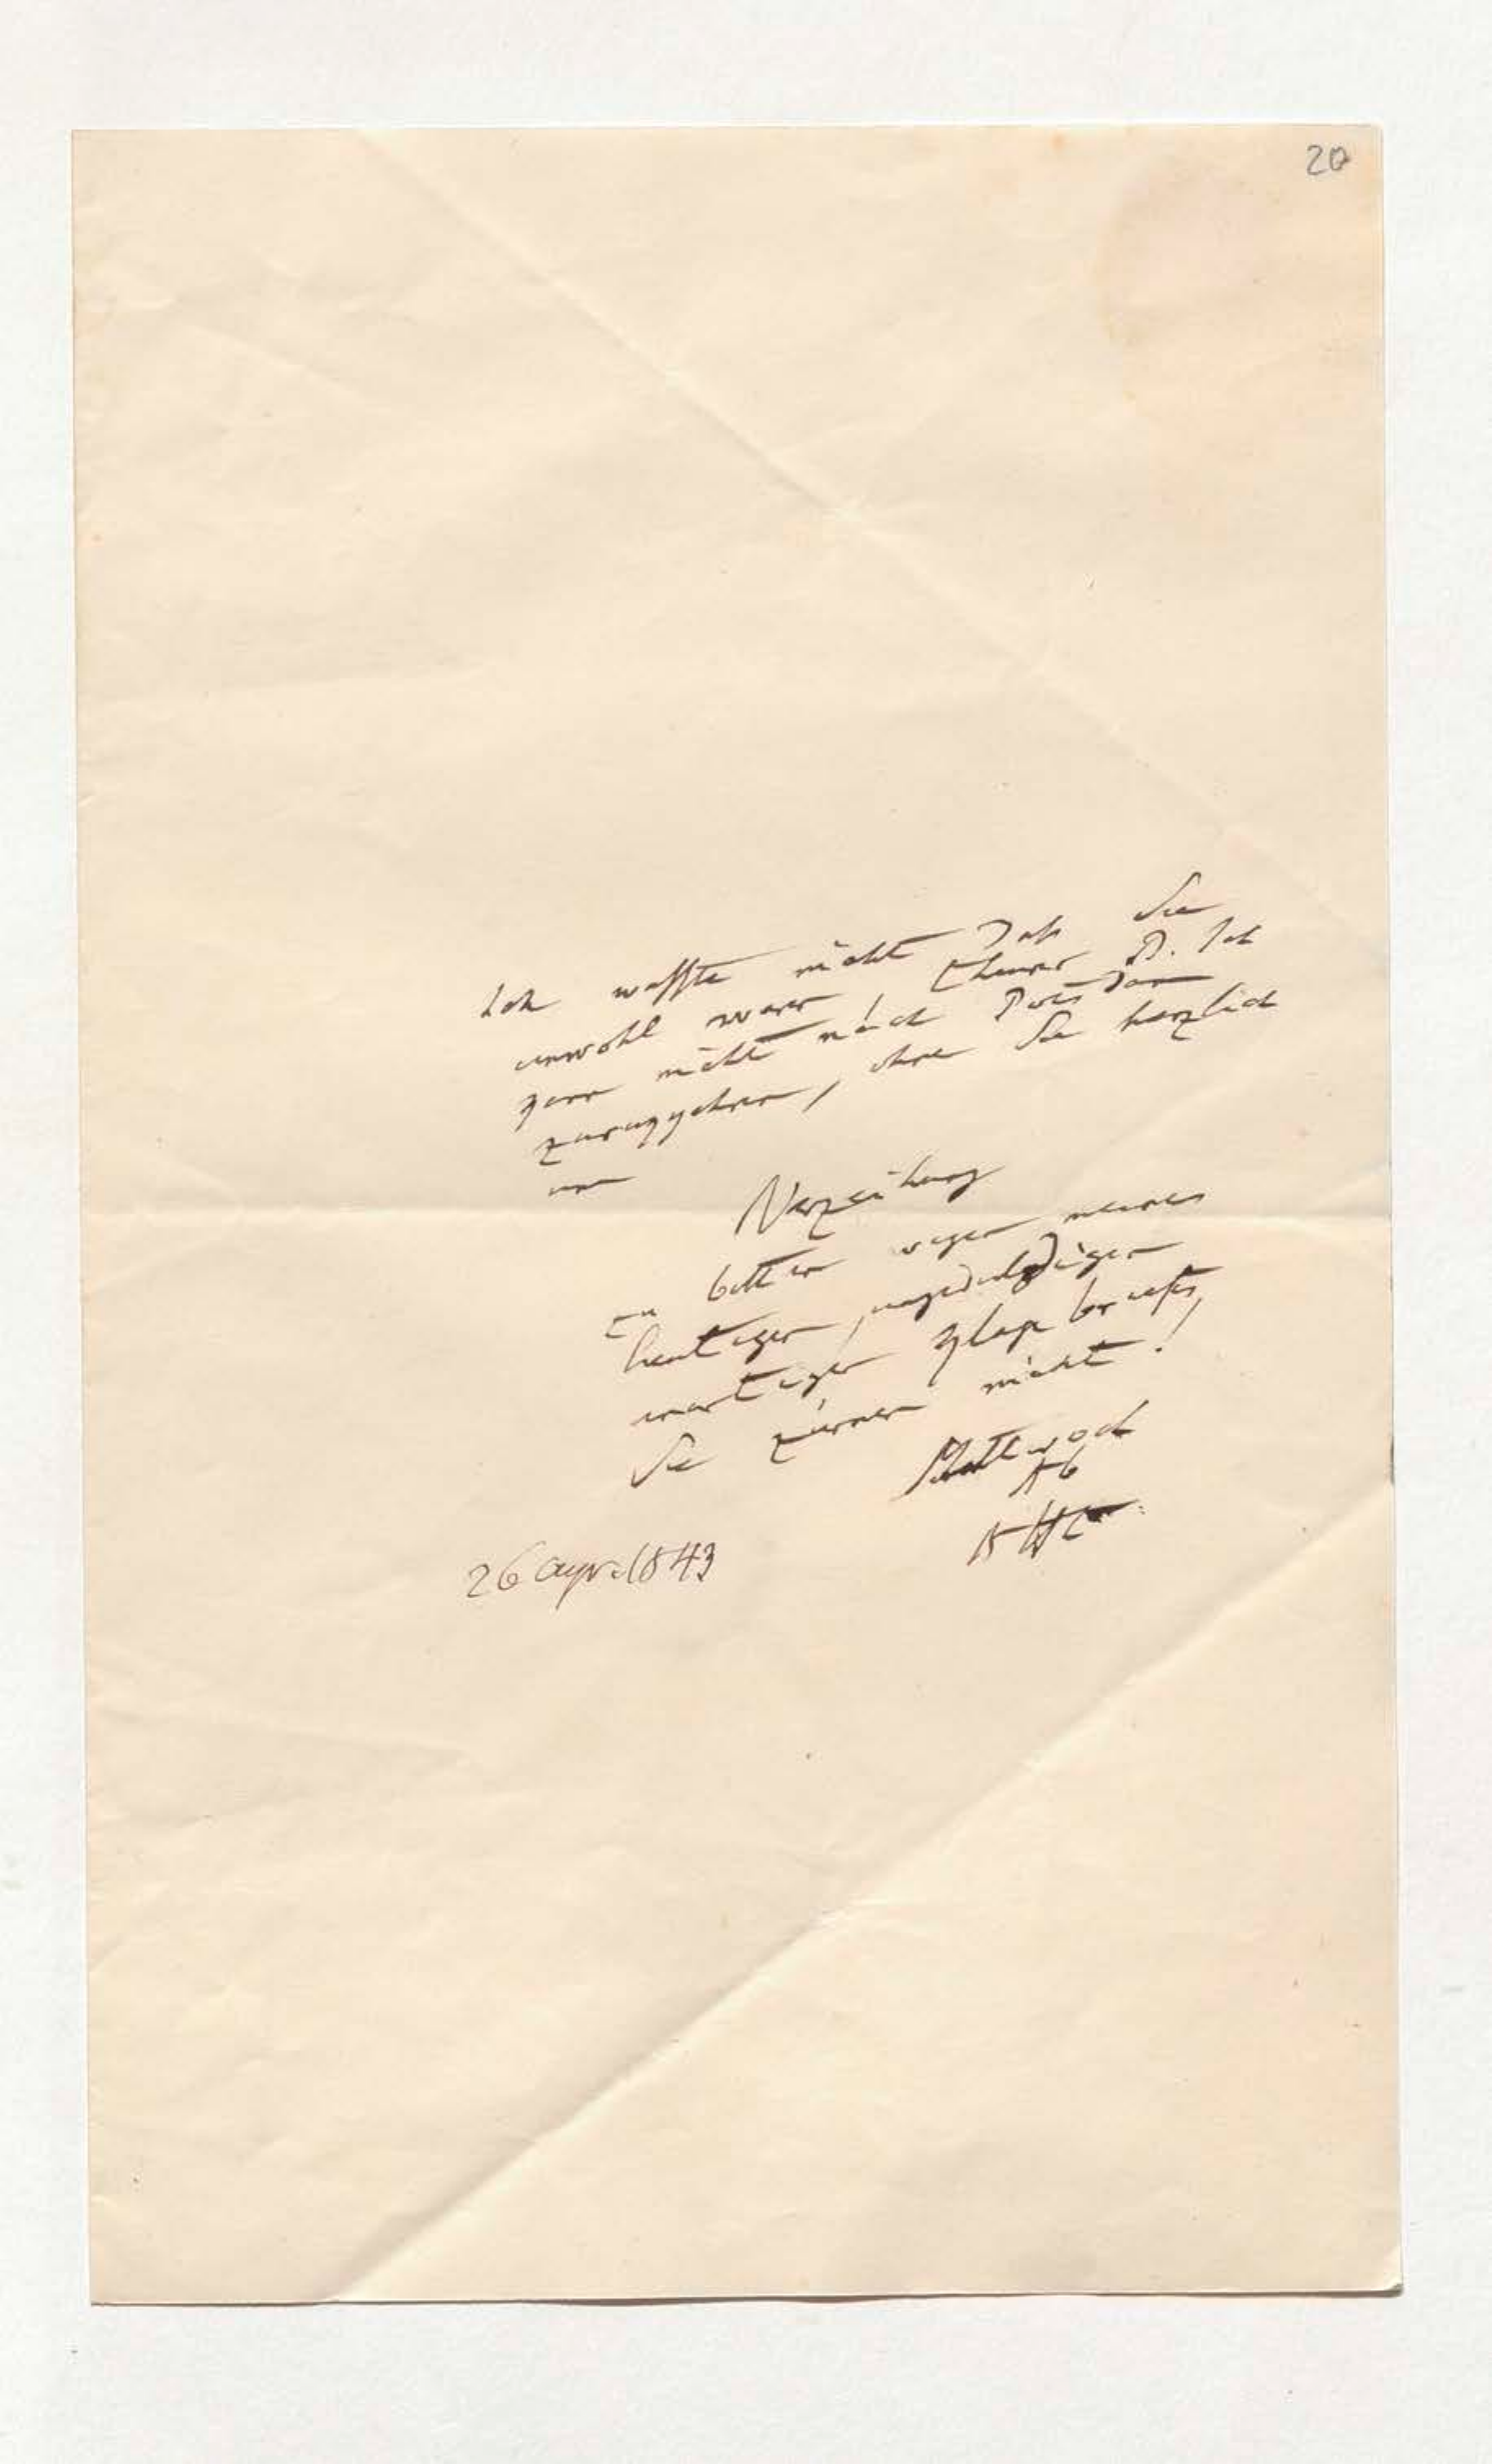 20
Ich wußte nicht daß Sie
unwohl waren, theurer D. Ich
gern nicht nach Potsdam
zurükgehen, ohne Sie herzlich
um
Verzeihung
zu bitten wegen meines
heutigen, ungeduldigen
unartigen Klage briefes,
Sie zürnen nicht!
Mittwoch
AHt
26 apr. 1843